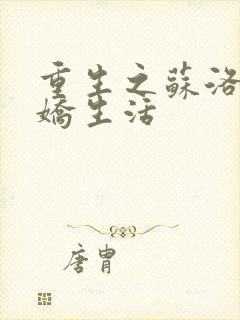 重生之蘇洛
嬌生活
唐胄